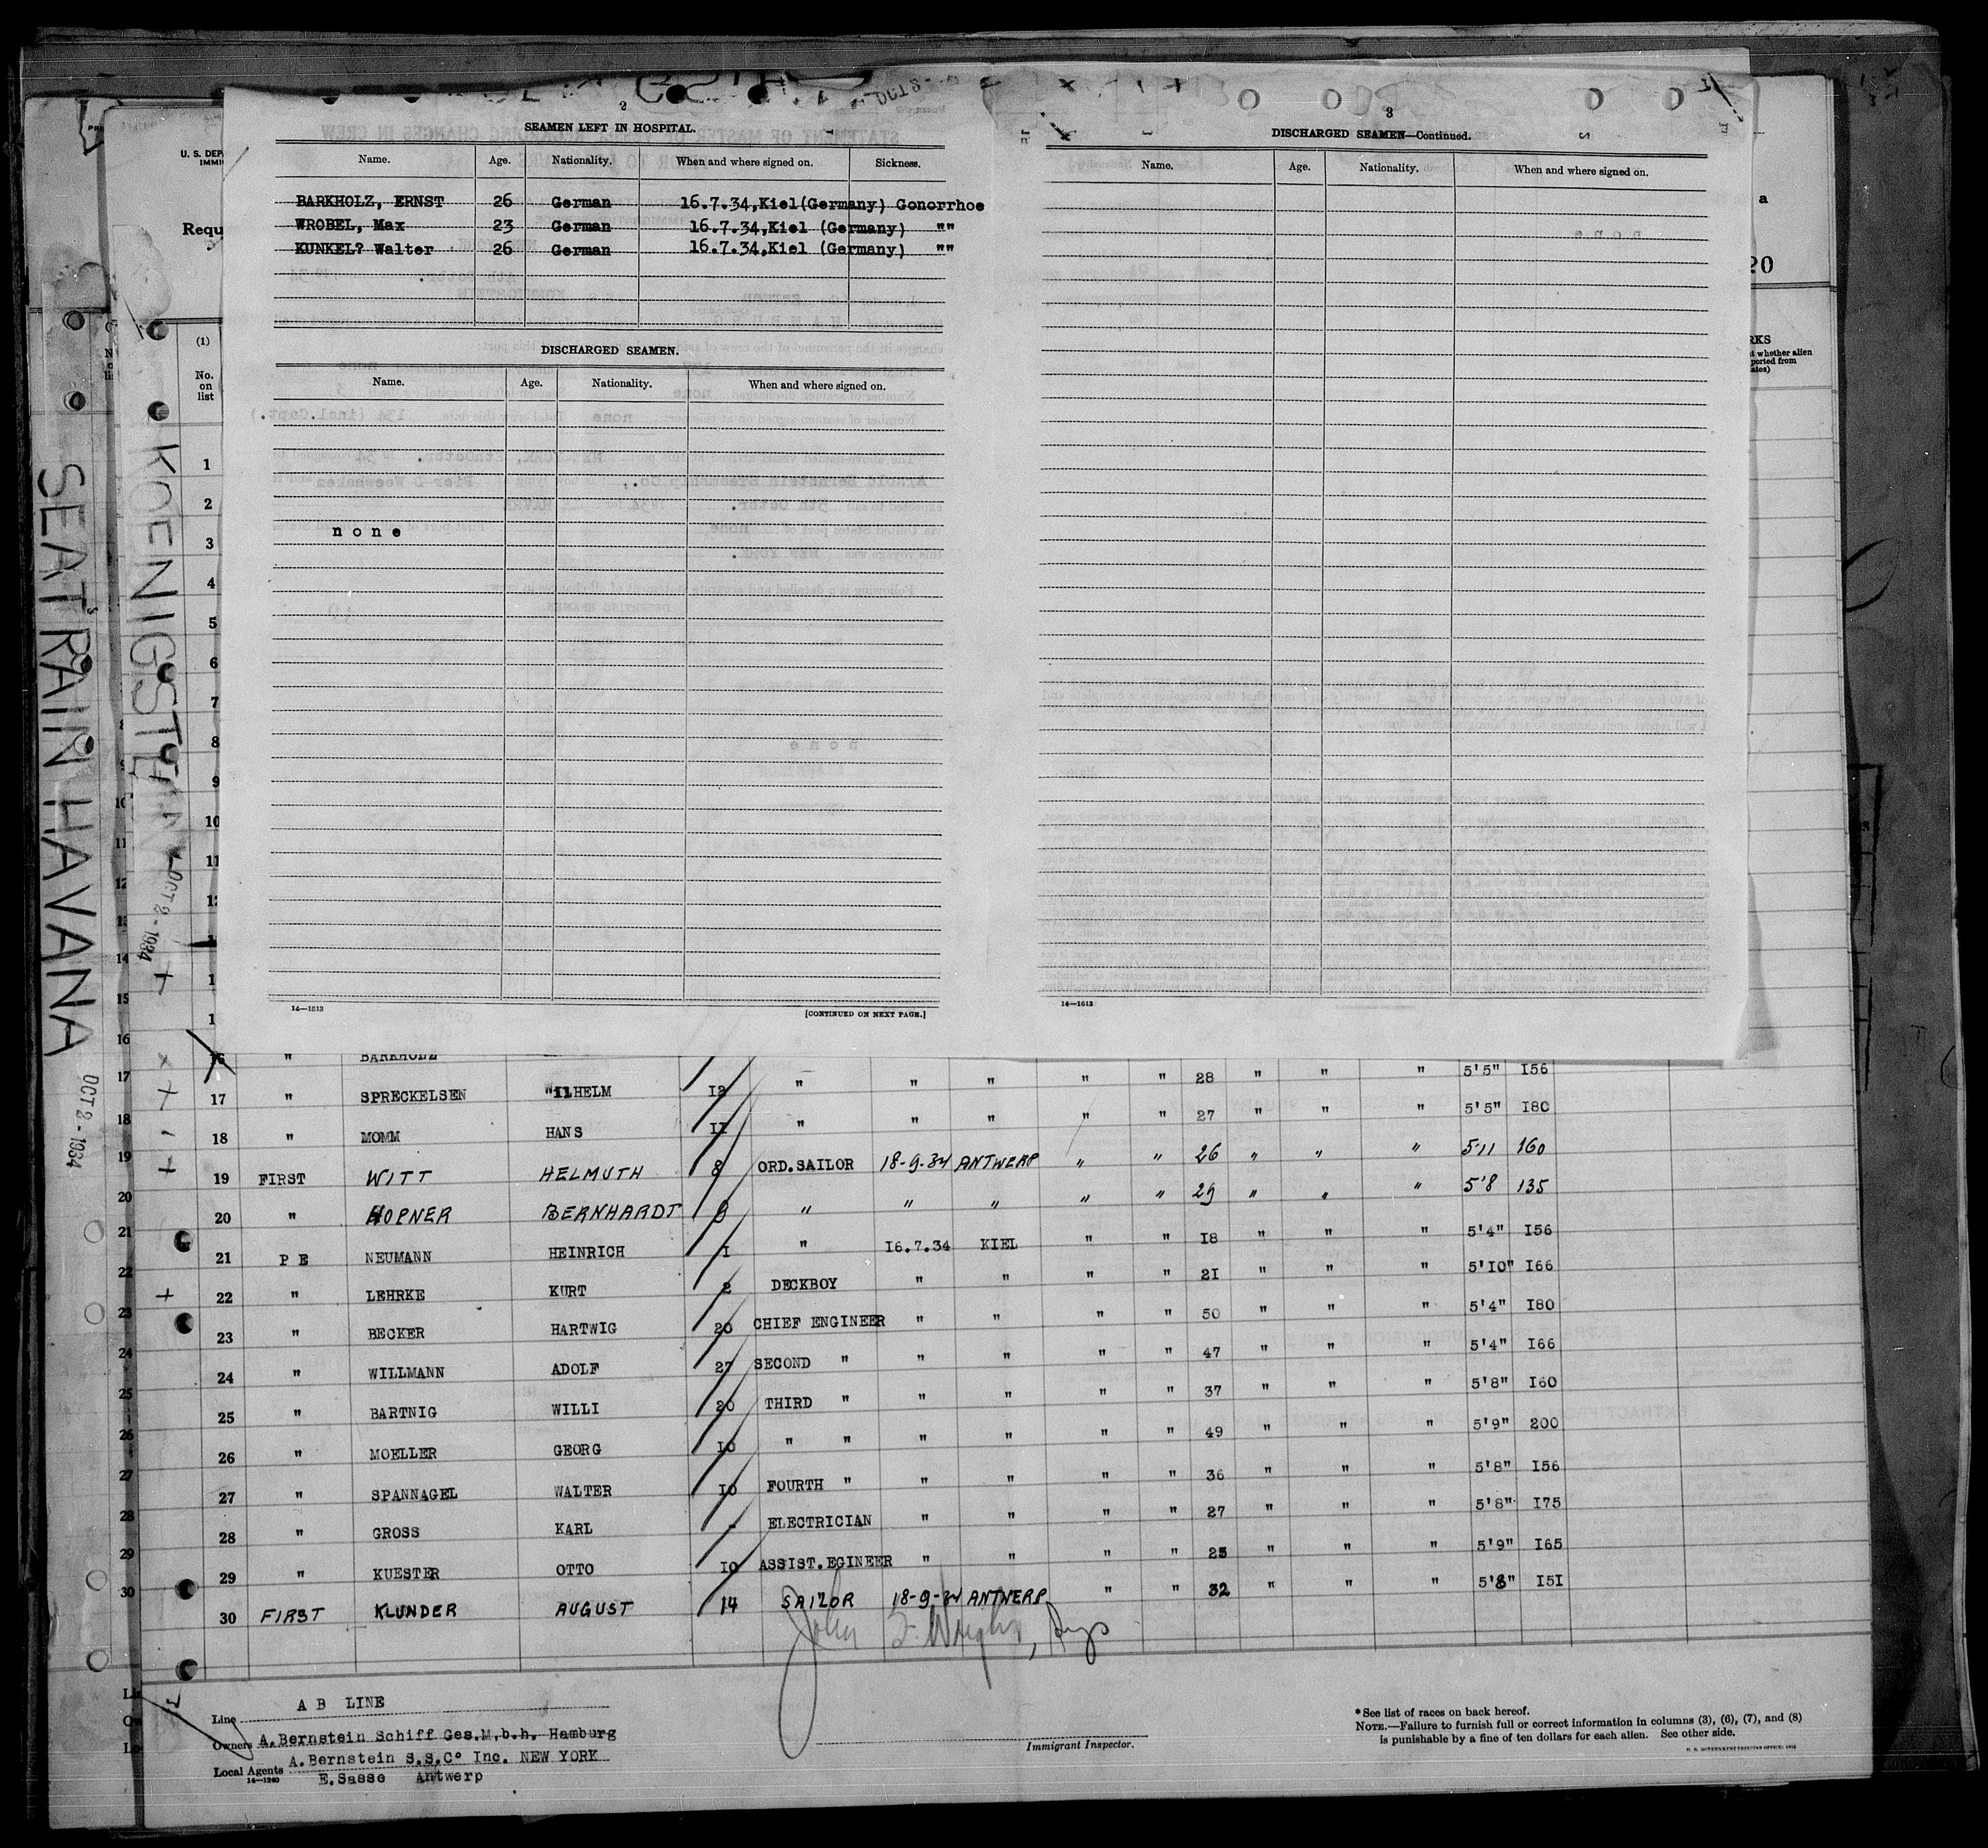 2
SEAMEN LEFT IN HOSPITAL.
Name. Age. Nationality. When and where signed on. Sickness.
BARKHOLZ, ERNST 26 German 16.7.34,Kiel(Germany) Gonorrhoe
WROBEL, Max 23 German 16.7.34,Kiel (Germany) ""
KUNKEL? Walter 26 German 16.7.34,Kiel (Germany) ""
DISCHARGED SEAMEN.
Name. Age. Nationality. When and where signed on.
none
14—1613 [CONTINUED ON NEXT PAGE.]
3
DISCHARGED SEAMEN—Continued.
Name. Age. Nationality. When and where signed on.
14—1613
U. S. DEP
IMMI
Requ
a
20
RKS
(1)
No.
on
list
1
2
3
4
5
6
7
8
9
10
11
SEATRAIN HAVANA
OCT 2-1934
KOENIGSTEIN
OCT 2-1934
16 " BARKHOLZ
17 " SPRECKELSEN WILHELM 12 " " " " " 28 " " " 5'5" 156
18 " MOMM HANS 11 " " " " " 27 " " " 5'5" 180
19 FIRST WITT HELMUTH 8 ORD.SAILOR 18-9-34 ANTWERP " " 26 " " " 5'11 160
20 " HOPNER BERNHARDT 9 " " " " " 29 " " " 5'8 135
21 P E NEUMANN HEINRICH 1 " 16.7.34 KIEL " " 18 " " " 5'4" 156
22 " LEHRKE KURT 2 DECKBOY " " " " 21 " " " 5'10" 166
23 " BECKER HARTWIG 20 CHIEF ENGINEER " " " " 50 " " " 5'4" 180
24 " WILLMANN ADOLF 27 SECOND " " " " " 47 " " " 5'4" 166
25 " BARTNIG WILLI 20 THIRD " " " " " 37 " " " 5'8" 160
26 " MOELLER GEORG 10 " " " " " " 49 " " " 5'9" 200
27 " SPANNAGEL WALTER 10 FOURTH " " " " " 36 " " " 5'8" 156
28 " GROSS KARL - ELECTRICIAN " " " " 27 " " " 5'8" 175
29 " KUESTER OTTO 10 ASSIST.EGINEER " " " " 25 " " " 5'9" 165
30 FIRST KLUNDER AUGUST 14 SAILOR 18-9-34 ANTWERP " " 32 " " " 5'8" 151
Line A B LINE
Owners A.Bernstein Schiff Ges.M,b.h, Hamburg
Local Agents A.Bernstein S.S.Co Inc. NEW YORK
14—1240 E.Sasse Antwerp
Immigrant Inspector.
*See list of races on back hereof.
NOTE.—Failure to furnish full or correct information in columns (3), (6), (7), and (8)
is punishable by a fine of ten dollars for each alien. See other side.